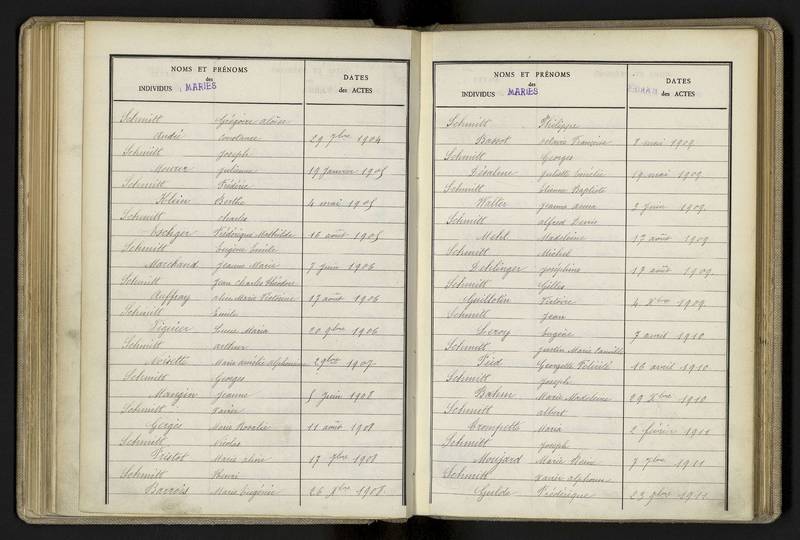 NOMS ET PRÉNOMS
des
INDIVIDUS MARIÉS
DATES
des ACTES
Schmitt Grégoire Aloïse
André Constance 29 9bre 1904
Schmitt Joseph
Mourer Julienne 19 Janvier 1905
Schmitt Frédéric
Klein Berthe 4 mai 1905
Schmitt Charles
Eschger Frédérique Mathilde 16 août 1905
Schmitt Eugène Emile
Marchand Jeanne Marie 7 juin 1906
Schmitt Jean Charles Théodore
Auffray Marie Victorine 17 août 1906
Schmitt Emile
Viguier Maria 20 9bre 1906
Schmitt Arthur
Noisette Marie Amélie Alphonsine 1907
Schmitt Georges
Mangin Jeanne 5 juin 1908
Schmitt Xavier
Gergès Marie Rosalie 11 août 1908
Schmitt Nicolas
Tristot Marie Aline 17 9bre 1908
Schmitt Henri
Barrois Marie Eugénie 26 Xbre 1908
NOMS ET PRÉNOMS
des
INDIVIDUS MARIÉS
DATES
des ACTES
Schmitt Philippe
Bassot Octavie Françoise 8 mai 1909
Schmitt Georges
Juliette Amélie 19 mai 1909
Schmitt Etienne Baptiste
Walter Jeanne Anna 2 Juin 1909
Schmitt Alfred Denis
Mehl Madeleine 17 août 1909
Schmitt Michel
Joséphine 17 août 1909
Schmitt Gilles
Guillotin Victoire 4 Xbre 1909
Schmitt Jean
Leroy Eugénie 7 avril 1910
Schmitt Justin Marie Camille
Georgette Félicité 16 avril 1910
Schmitt Joseph
Marie Madeleine 29 Xbre 1910
Schmitt Albert
Trompette Maria 2 février 1911
Schmitt Joseph
Moujard Marie 7 7bre 1911
Schmitt Xavier Alphonse
Gulde Frédérique 23 9bre 1911